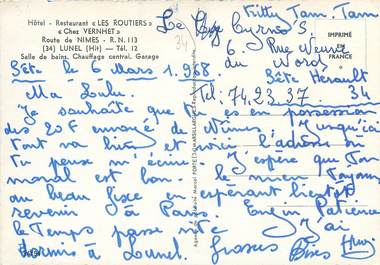 Hôtel - Restaurant « LES ROUTIERS »
« Chez VERNHET »
Route de NIMES - R.N. 113
(34) LUNEL (Hlt) — Tél. 12
Salle de bains. Chauffage central. Garage
Sète le 6 mars 1968
Ma Lulu.
Je souhaite que tu es en possession
des 20 F envoyé de Nîmes, jusqu'ici
tout va bien et voici l'adresse où
tu peux m'écrire. J'espère que Ton
moral est bon. le mien Toujours
au beau fixe en espérant bientôt
revenir à Paris. Enfin Patience
le Temps passe vite J'ai
dormis à Lunel. Grosses Bises
Kitty Tam. Tam
Le Cyrno's
6. Rue Neuve
du Nord
Sète Hérault
Tel: 74.23.37. 34
IMPRIMÉ
FRANCE